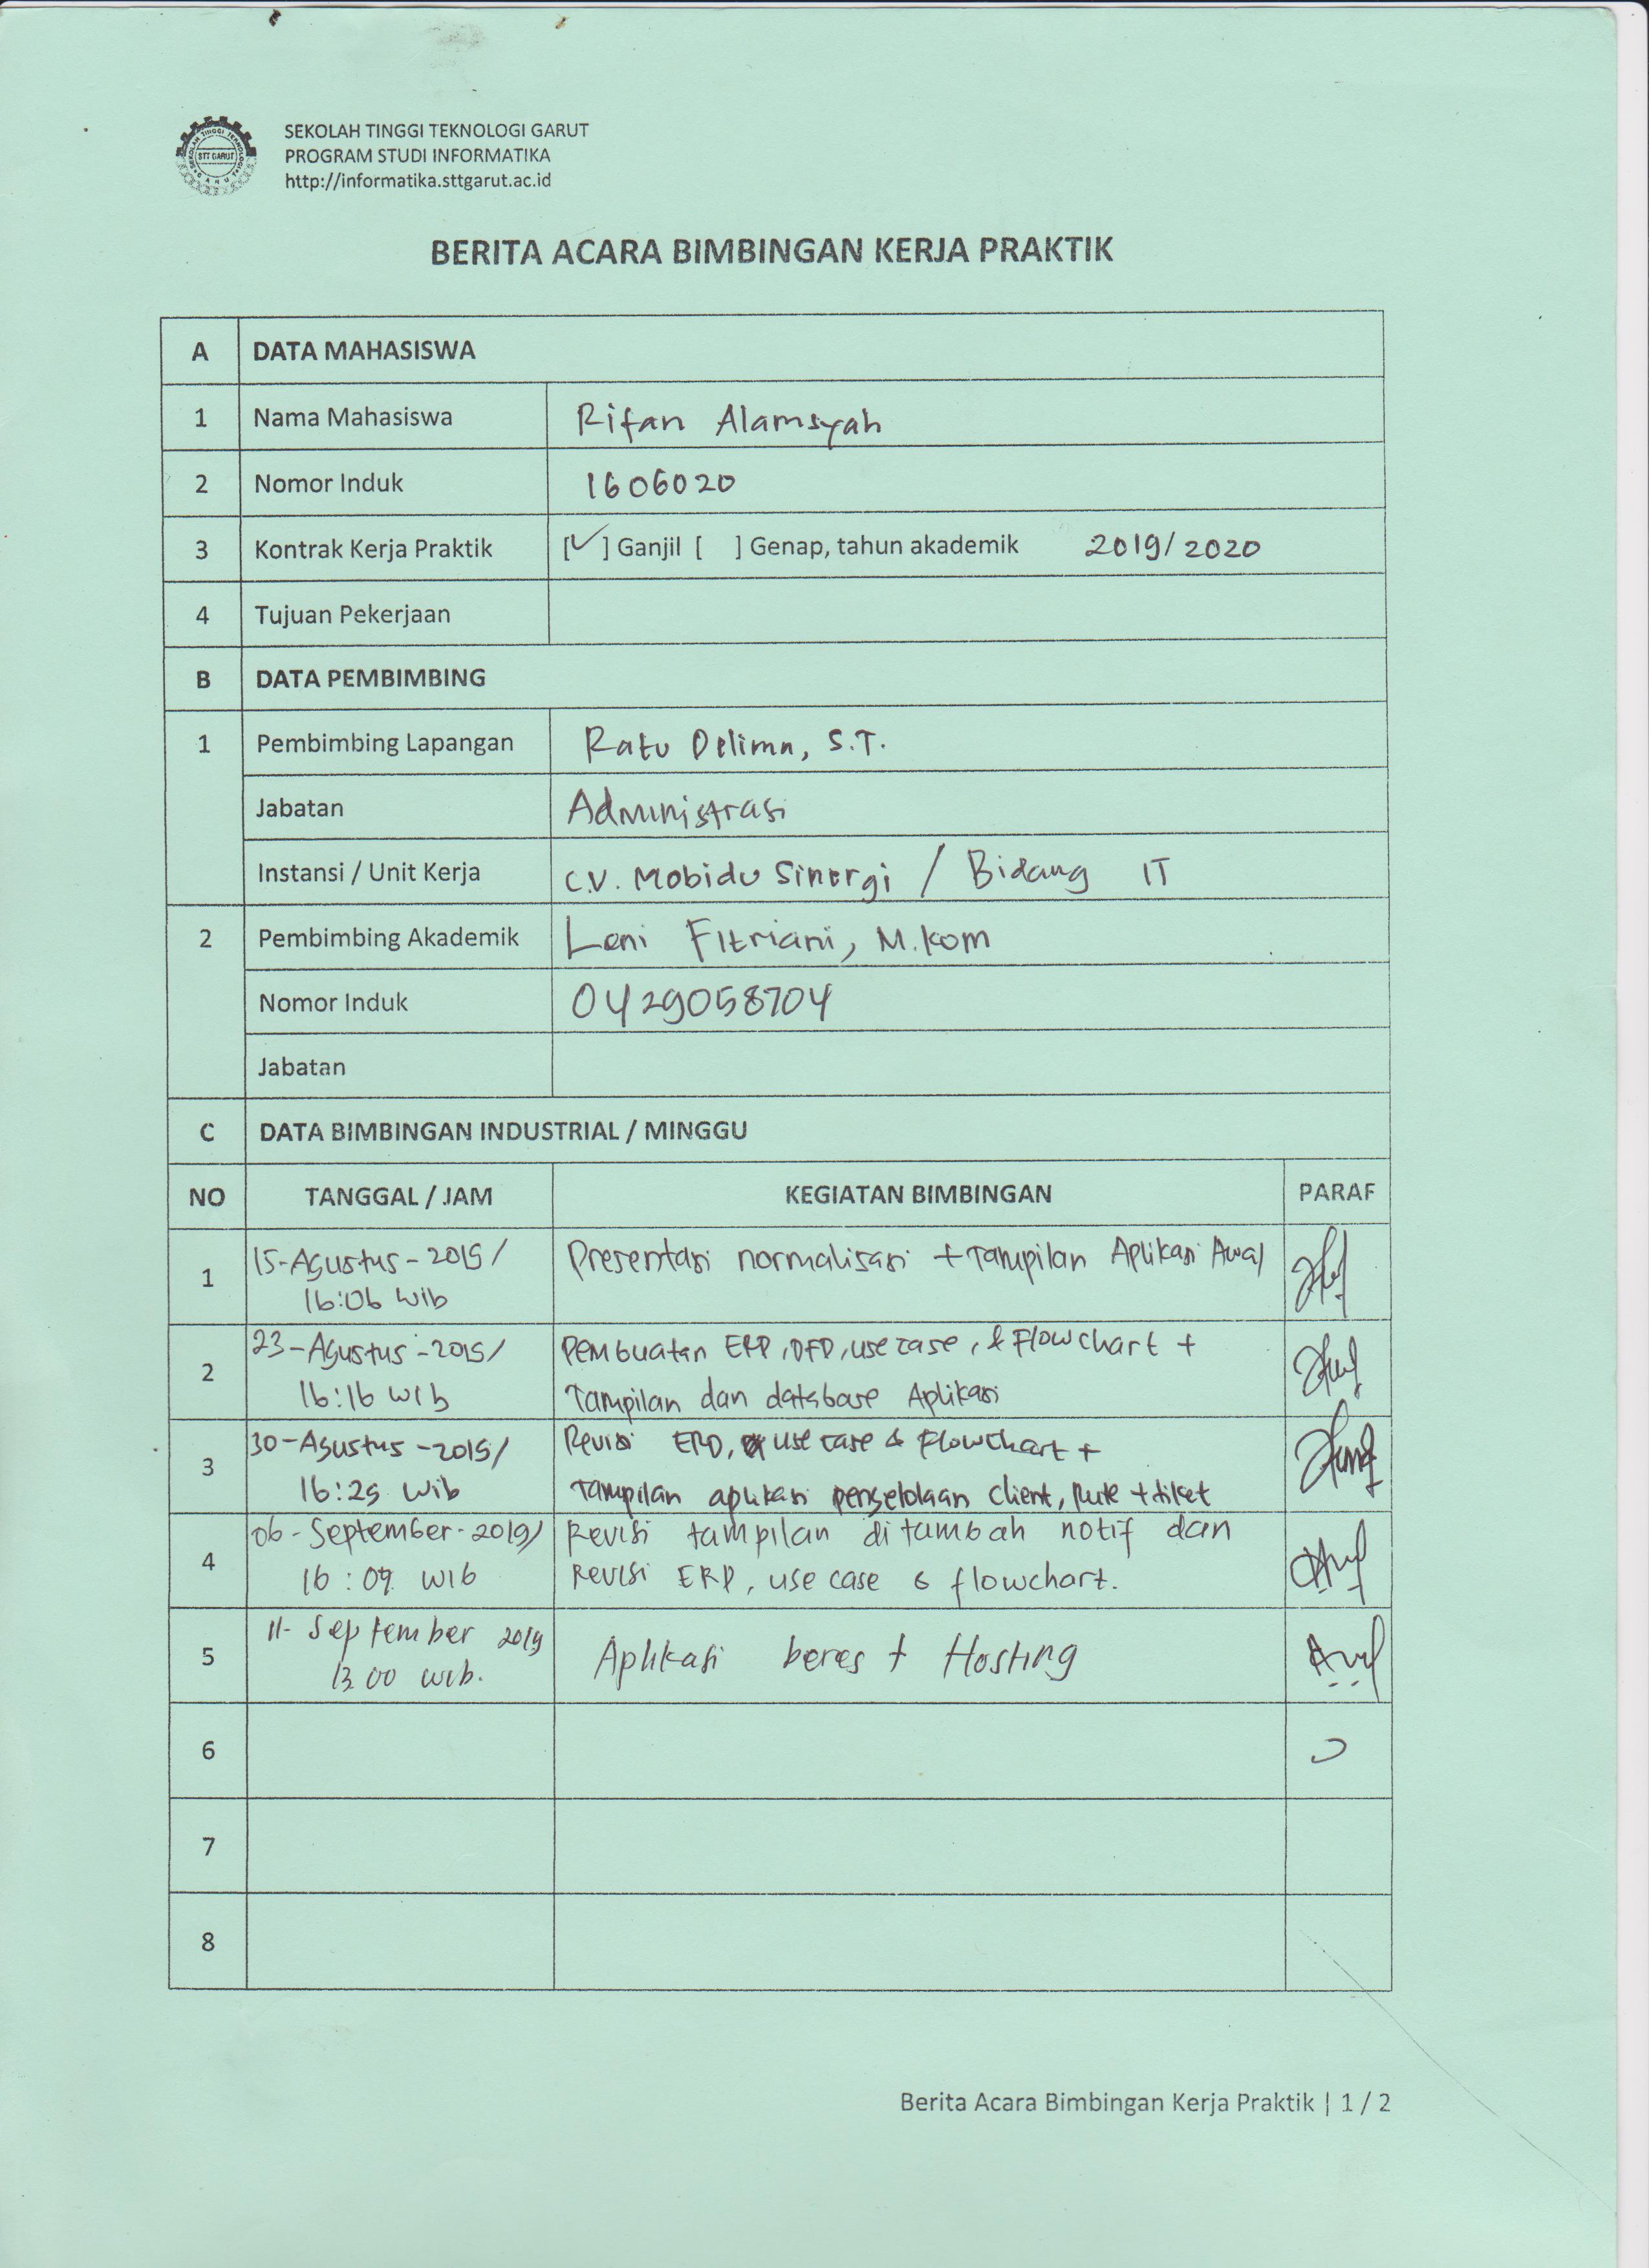 SEKOLAH TINGGI TEKNOLOGI GARUT
PROGRAM STUDI INFORMATIKA
http://informatika.sttgarut.ac.id
STT GARUT
BERITA ACARA BIMBINGAN KERJA PRAKTIK
A DATA MAHASISWA
1 Nama Mahasiswa Rifan Alamsyah
2 Nomor Induk 1606020
3 Kontrak Kerja Praktik [✓] Ganjil [ ] Genap, tahun akademik 2019/2020
4 Tujuan Pekerjaan
B DATA PEMBIMBING
1 Pembimbing Lapangan Ratu Delima, S.T.
Jabatan Administrasi
Instansi / Unit Kerja C.V. Mobidu Sinergi / Bidang IT
2 Pembimbing Akademik Leni Fitriani, M.kom
Nomor Induk 0429058704
Jabatan
C DATA BIMBINGAN INDUSTRIAL / MINGGU
NO TANGGAL / JAM KEGIATAN BIMBINGAN PARAF
1 15-Agustus-2019/ Presentasi normalisasi + Tampilan Aplikasi Awal
16:06 Wib
2 23-Agustus-2019/ Pembuatan ERD, DFD, use case, & Flowchart +
16:16 Wib Tampilan dan database Aplikasi
3 30-Agustus-2019/ Revisi ERD, use case & Flowchart +
16:29 Wib Tampilan aplikasi pengelolaan client, Rute + tiket
4 06-September-2019/ Revisi tampilan ditambah notif dan
16:09 WIB Revisi ERD, use case & flowchart.
5 11-September 2019 Aplikasi beres + Hosting
13.00 wib.
6
7
8
Berita Acara Bimbingan Kerja Praktik | 1 / 2